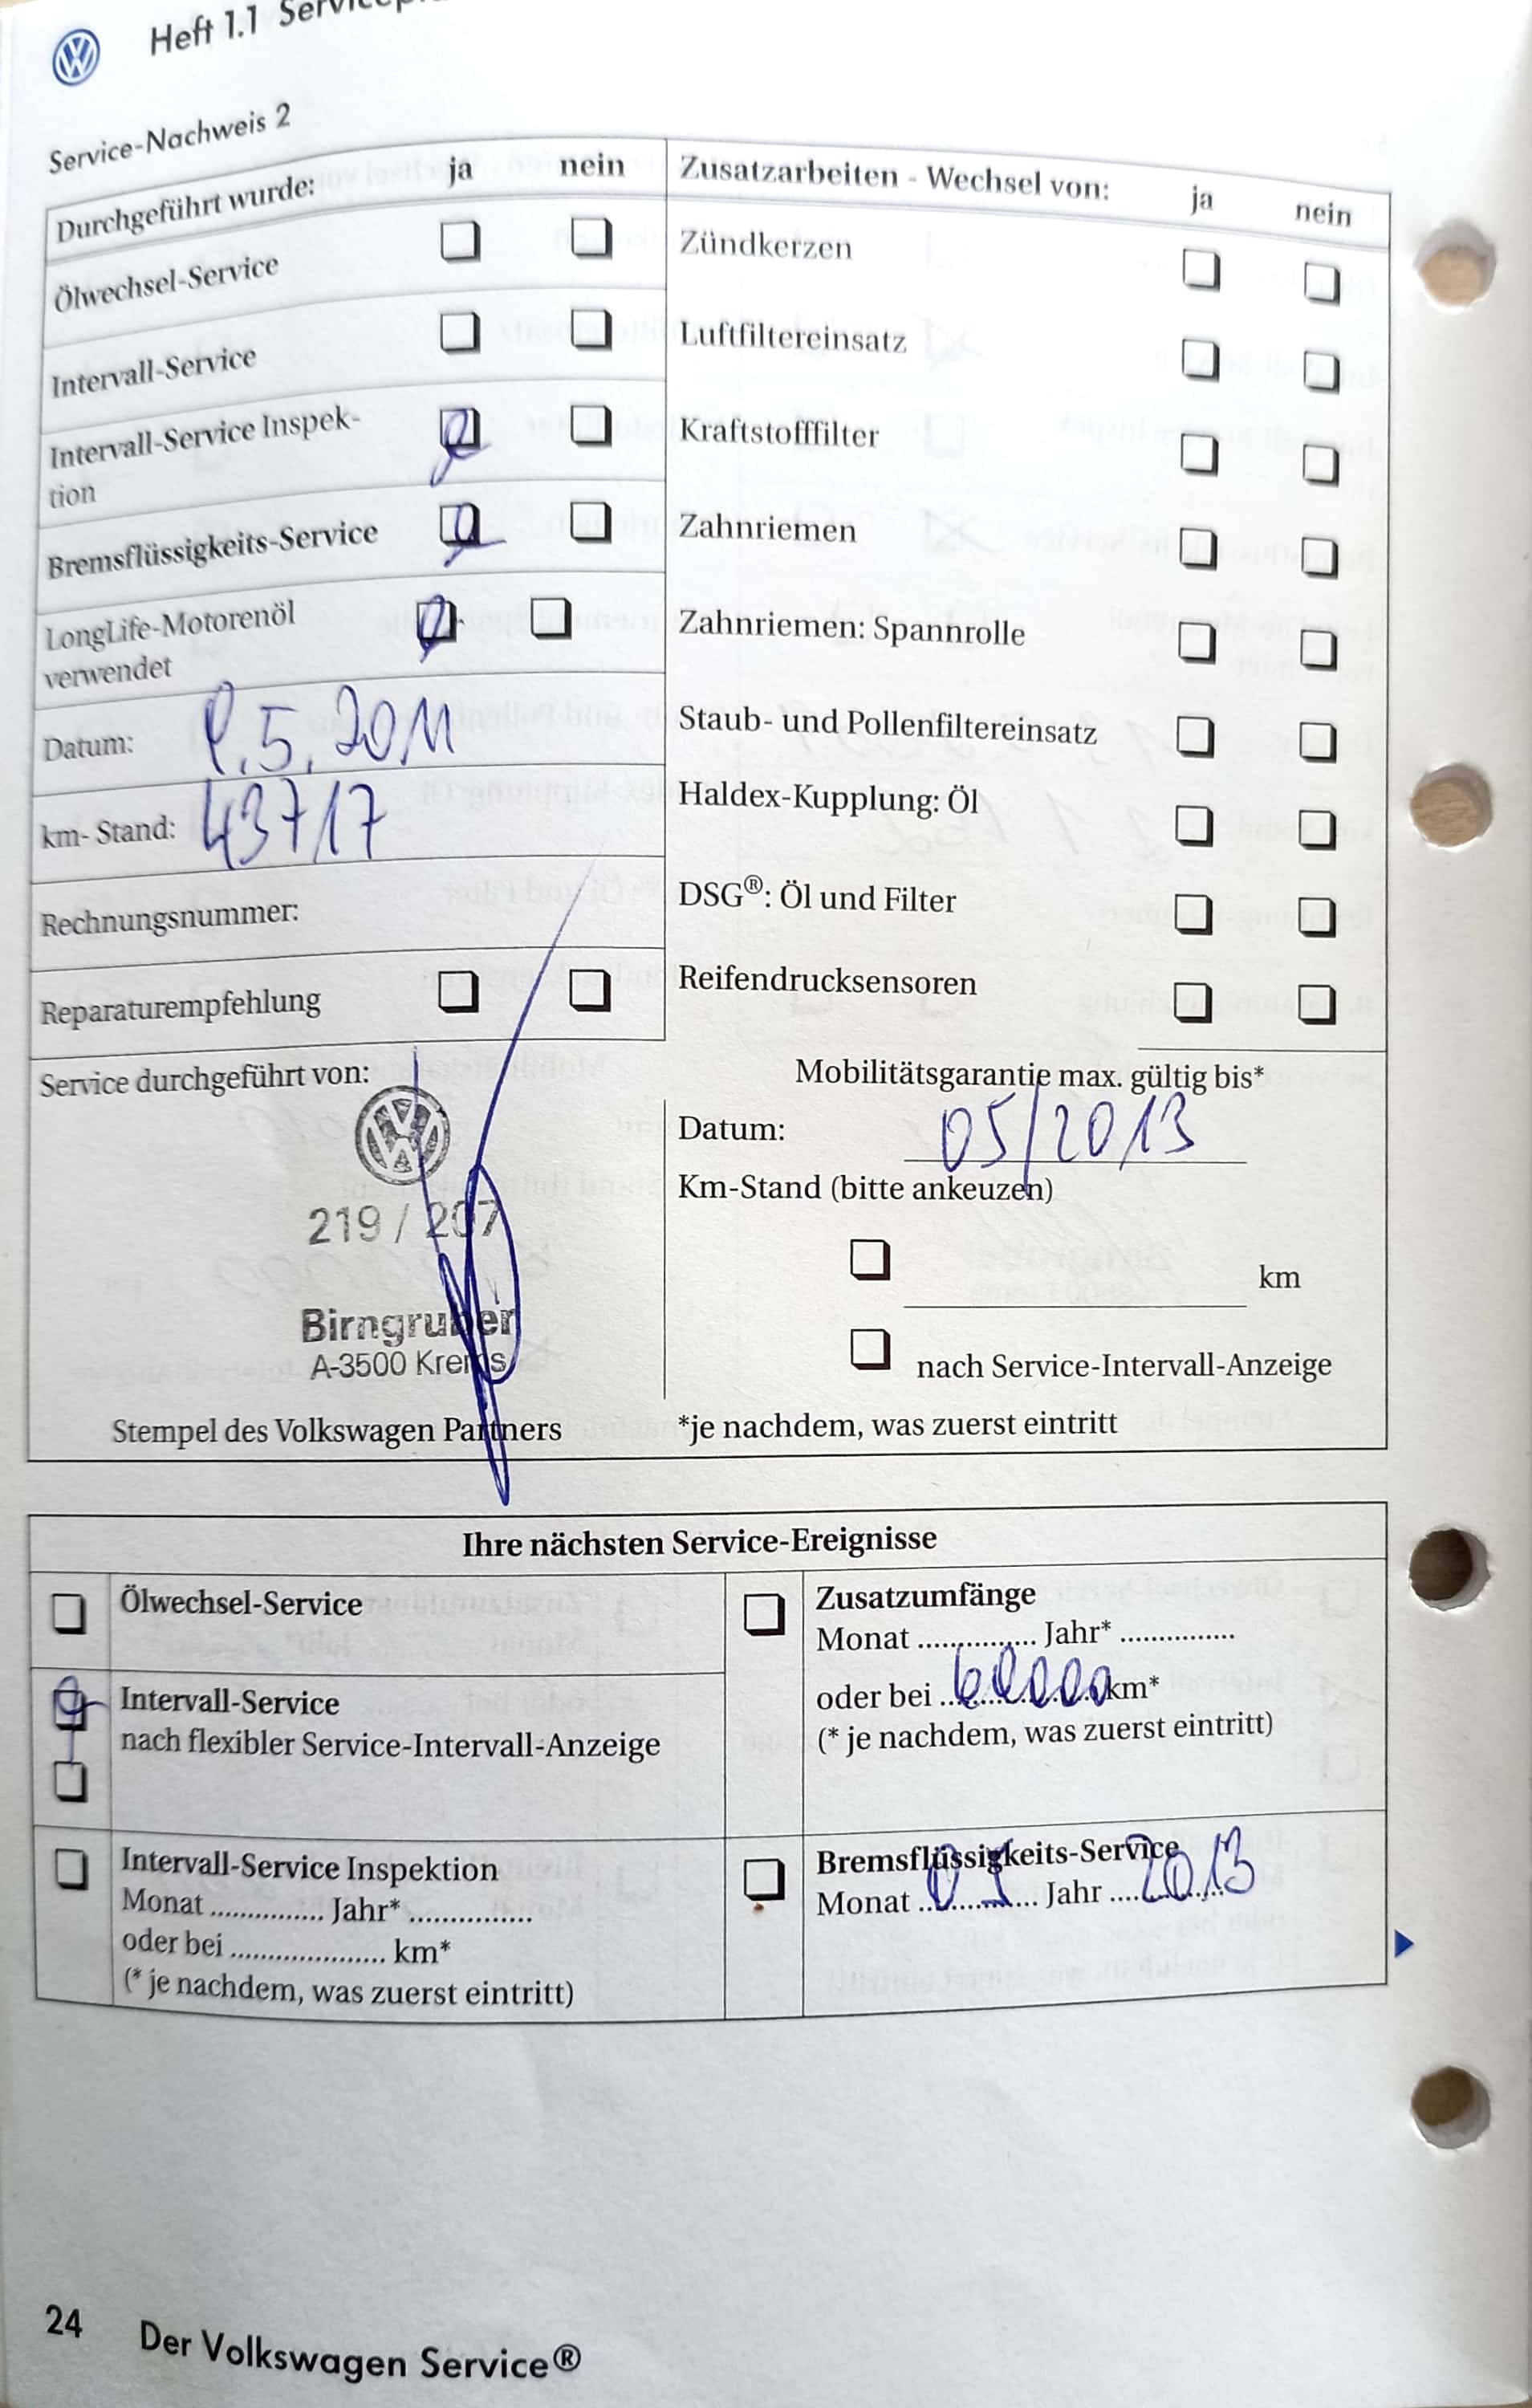 Heft 1.1
Service-Nachweis 2
Durchgeführt wurde: ja nein
Ölwechsel-Service
Intervall-Service
Intervall-Service Inspek-
tion
Bremsflüssigkeits-Service
LongLife-Motorenöl
verwendet
Datum: 5.2011
km- Stand: 43717
Rechnungsnummer:
Reparaturempfehlung
Zusatzarbeiten - Wechsel von: ja nein
Zündkerzen
Luftfiltereinsatz
Kraftstofffilter
Zahnriemen
Zahnriemen: Spannrolle
Staub- und Pollenfiltereinsatz
Haldex-Kupplung: Öl
DSG®: Öl und Filter
Reifendrucksensoren
Service durchgeführt von:
219 / 207
Birngruber
A-3500 Krems
Stempel des Volkswagen Partners
Mobilitätsgarantie max. gültig bis*
Datum: 05/2013
Km-Stand (bitte ankeuzen)
km
nach Service-Intervall-Anzeige
*je nachdem, was zuerst eintritt
Ihre nächsten Service-Ereignisse
Ölwechsel-Service
Intervall-Service
nach flexibler Service-Intervall-Anzeige
Intervall-Service Inspektion
Monat ............... Jahr* ...............
oder bei .................... km*
(* je nachdem, was zuerst eintritt)
Zusatzumfänge
Monat ............... Jahr* ...............
oder bei 60000 km*
(* je nachdem, was zuerst eintritt)
Bremsflüssigkeits-Service
Monat 05 Jahr 2013
24 Der Volkswagen Service®